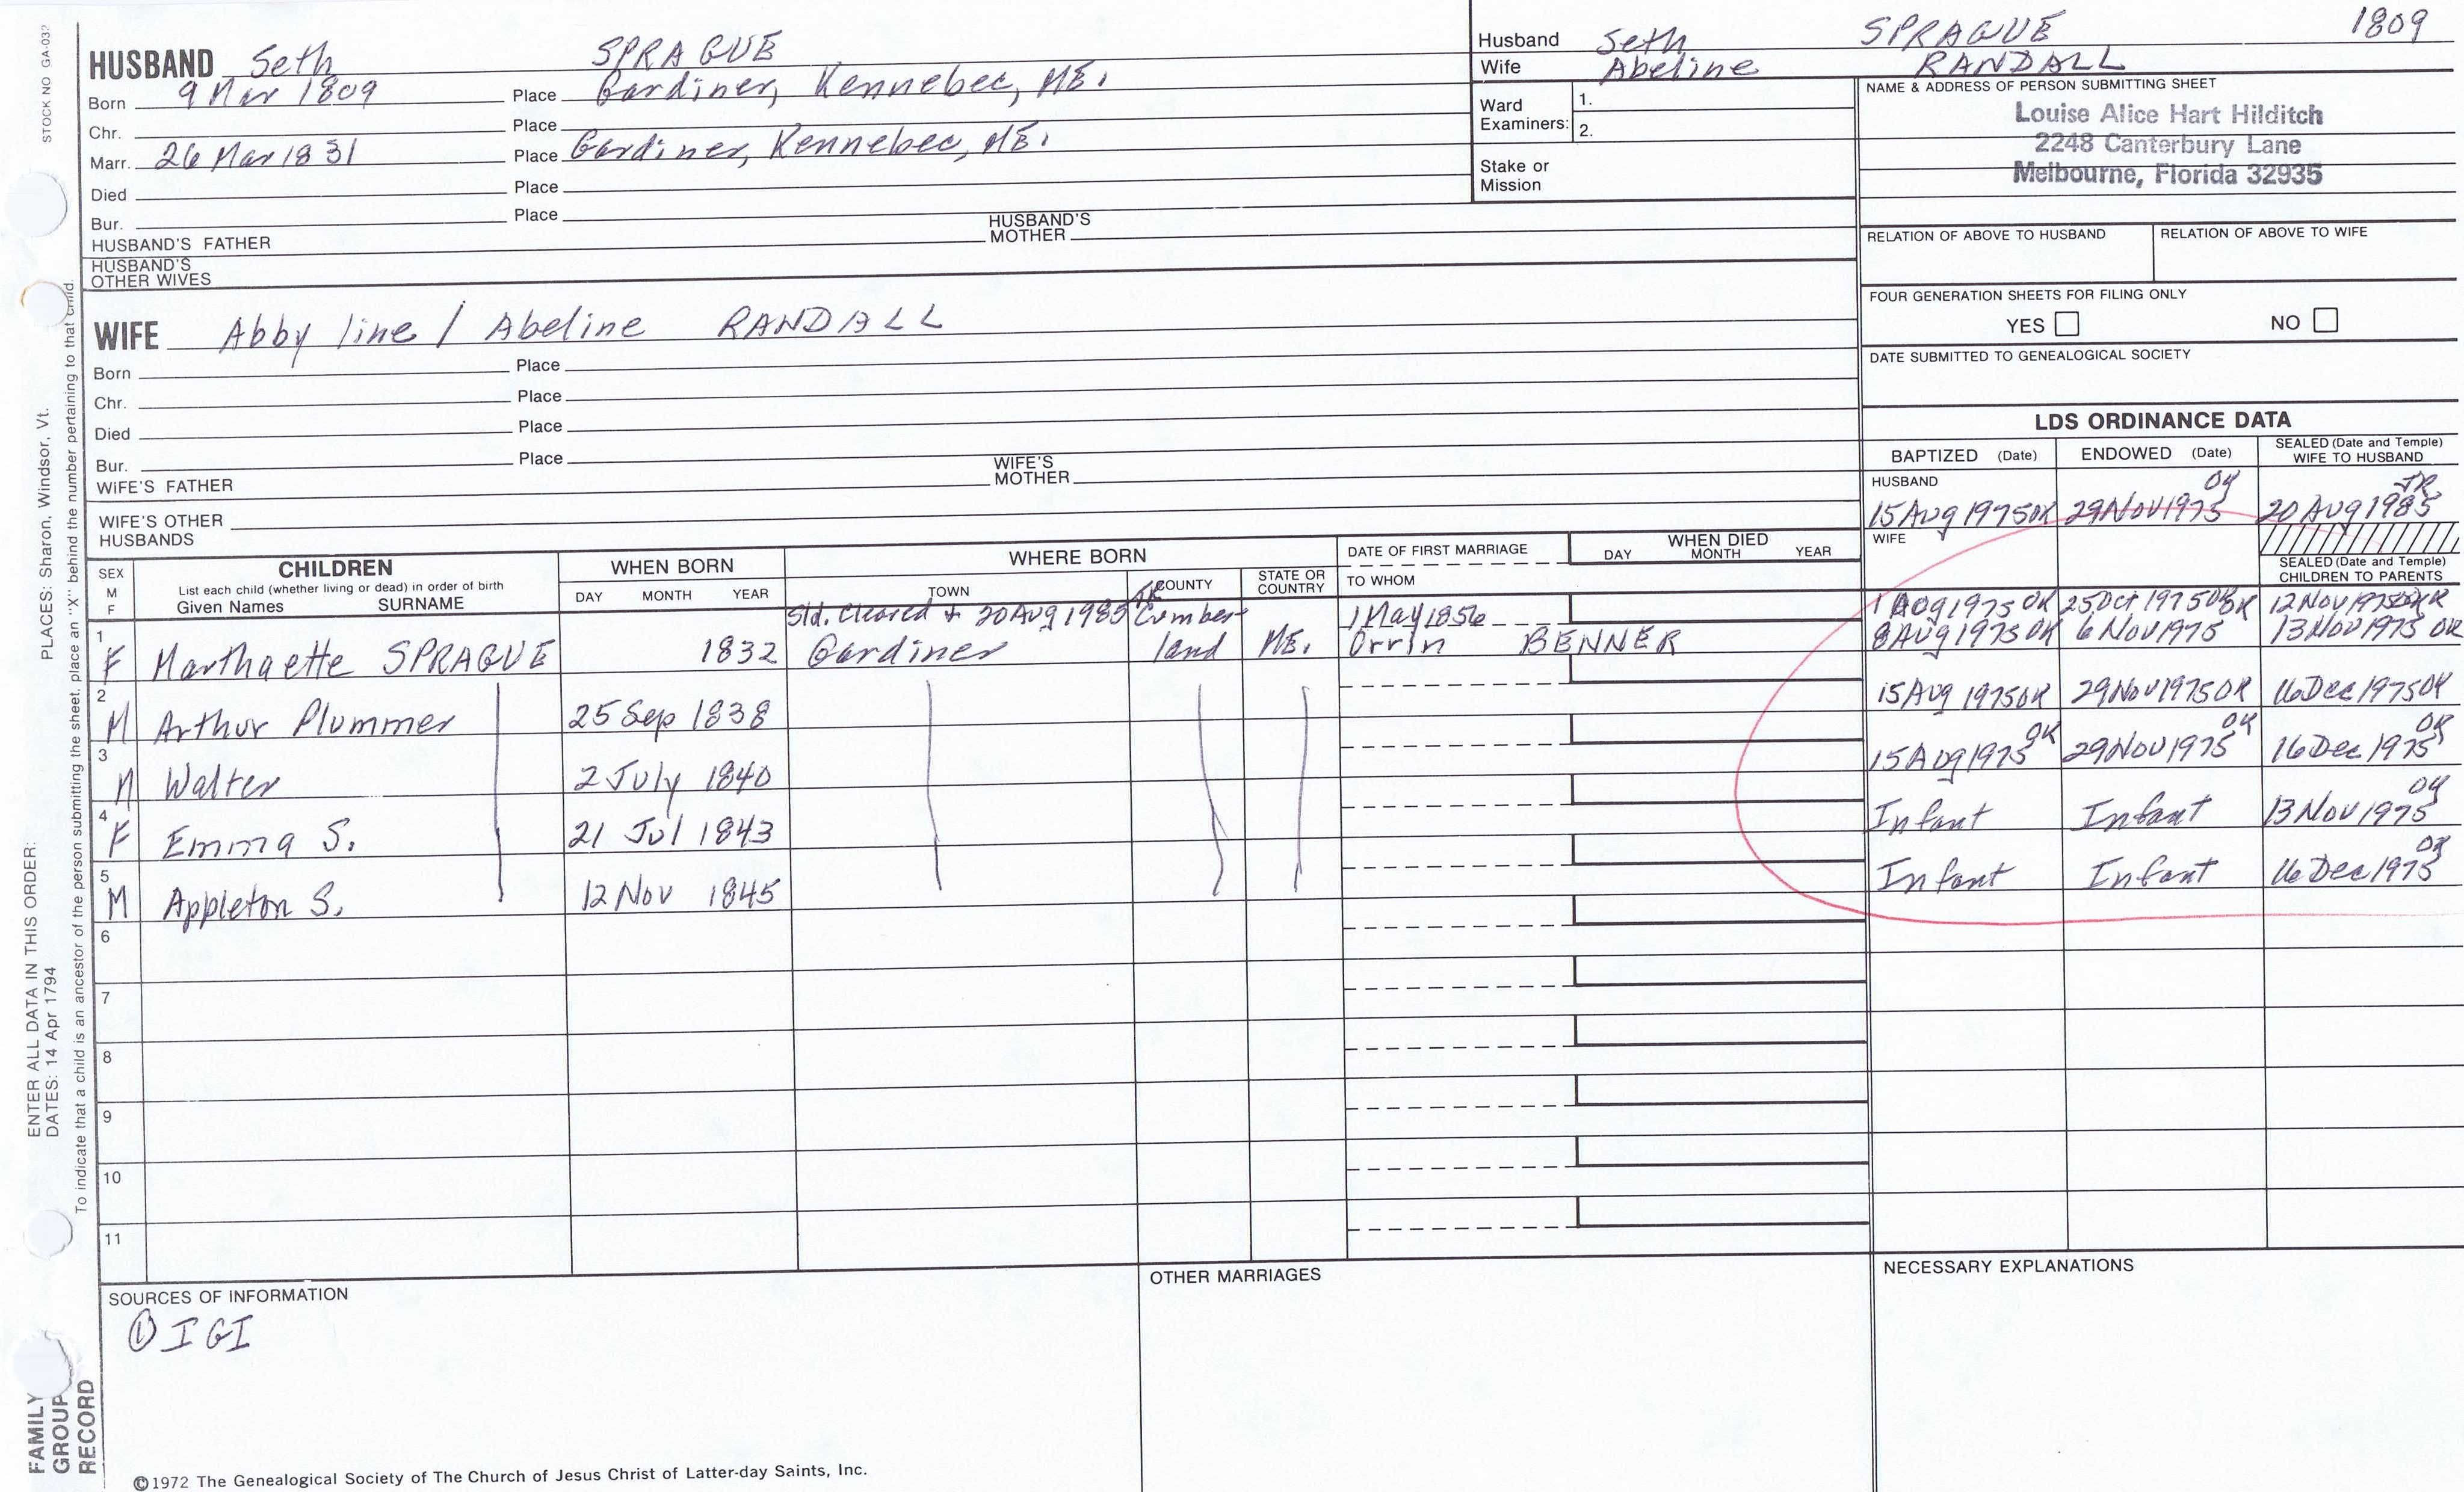 STOCK NO GA-032
HUSBAND Seth SPRAGUE
Born 9 Mar 1809 Place Gardiner, Kennebec, ME.
Chr. Place
Marr. 26 Mar 1831 Place Gardiner, Kennebec, ME.
Died Place
Bur. Place
HUSBAND'S FATHER HUSBAND'S MOTHER
HUSBAND'S OTHER WIVES
Husband Seth SPRAGUE 1809
Wife Abeline RANDALL
Ward Examiners: 1.
2.
Stake or Mission
NAME & ADDRESS OF PERSON SUBMITTING SHEET
Louise Alice Hart Hilditch
2248 Canterbury Lane
Melbourne, Florida 32935
RELATION OF ABOVE TO HUSBAND RELATION OF ABOVE TO WIFE
FOUR GENERATION SHEETS FOR FILING ONLY
YES NO
DATE SUBMITTED TO GENEALOGICAL SOCIETY
WIFE Abby line / Abeline RANDALL
Born Place
Chr. Place
Died Place
Bur. Place
WIFE'S FATHER WIFE'S MOTHER
WIFE'S OTHER HUSBANDS
LDS ORDINANCE DATA
BAPTIZED (Date) ENDOWED (Date) SEALED (Date and Temple) WIFE TO HUSBAND
HUSBAND
15 Aug 1975 OK 29 Nov 1975 OK 20 Aug 1985 JR
WIFE
SEALED (Date and Temple) CHILDREN TO PARENTS
SEX M F
CHILDREN
List each child (whether living or dead) in order of birth
Given Names SURNAME
WHEN BORN
DAY MONTH YEAR
WHERE BORN
TOWN COUNTY STATE OR COUNTRY
DATE OF FIRST MARRIAGE
TO WHOM
WHEN DIED
DAY MONTH YEAR
Sld. Cleared + 20 Aug 1985 JR Cumber- 1 May 1856 25 Oct 1975 12 Nov 1975
1 F Marthaette SPRAGUE 1832 Gardiner land ME. Orrin BENNER 8 Aug 1975 OK 6 Nov 1975 13 Nov 1975 OK
2 M Arthur Plummer 25 Sep 1838 15 Aug 1975 OK 29 Nov 1975 OK 16 Dec 1975 OK
3 M Walter 2 July 1840 15 Aug 1975 OK 29 Nov 1975 OK 16 Dec 1975 OK
4 F Emma S. 21 Jul 1843 Infant Infant 13 Nov 1975 OK
5 M Appleton S. 12 Nov 1845 Infant Infant 16 Dec 1975 OK
6
7
8
9
10
11
SOURCES OF INFORMATION
① IGI
OTHER MARRIAGES
NECESSARY EXPLANATIONS
©1972 The Genealogical Society of The Church of Jesus Christ of Latter-day Saints, Inc.
ENTER ALL DATA IN THIS ORDER:
DATES: 14 Apr 1794
PLACES: Sharon, Windsor, Vt.
To indicate that a child is an ancestor of the person submitting the sheet, place an "X" behind the number pertaining to that child.
FAMILY GROUP RECORD